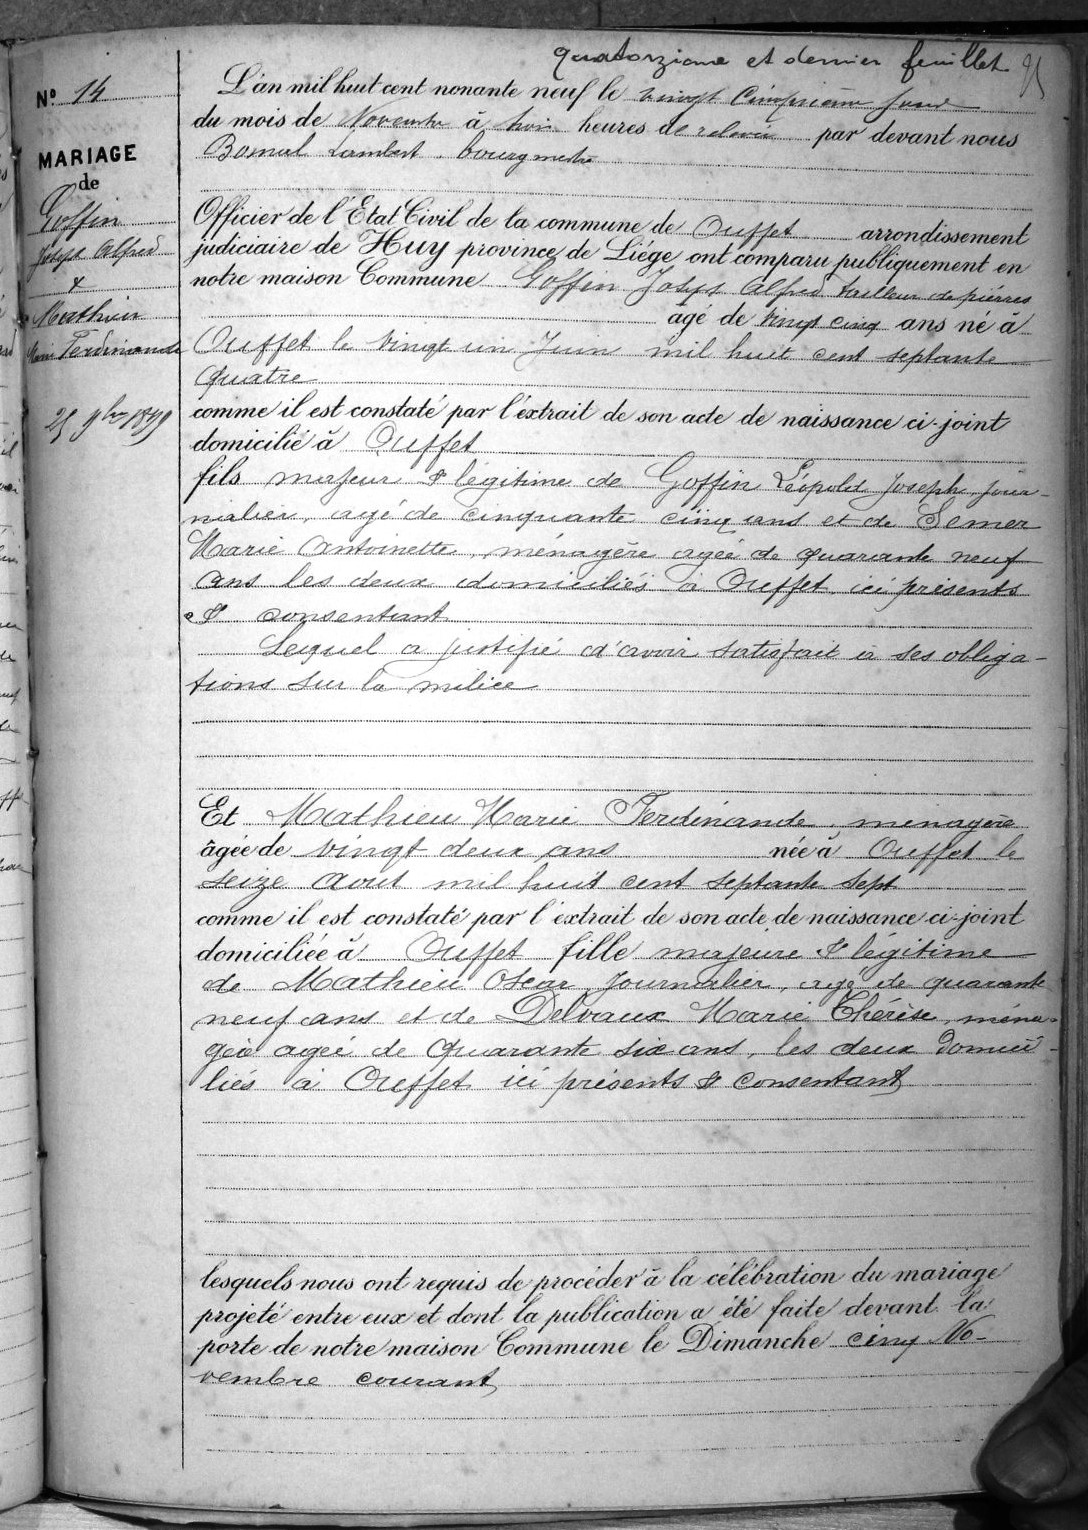 quatorzième et dernier feuillet
N° 14
MARIAGE
de
Goffin
Joseph Alfred
&
Mathieu
Marie Ferdinande
25 9bre 1899
L'an mil huit cent nonante neuf le vingt cinquième jour
du mois de Novembre à heures de relevée par devant nous
Bomal Lambert, bourgmestre
Officier de l'État Civil de la commune de Ouffet arrondissement
judiciaire de Huy province de Liége ont comparu publiquement en
notre maison Commune Goffin Joseph Alfred tailleur de pierres
agé de vingt cinq ans né à
Ouffet le vingt un Juin mil huit cent septante
quatre
comme il est constaté par l'extrait de son acte de naissance ci-joint
domicilié à Ouffet
fils majeur & légitime de Goffin Léopold Joseph, jour-
nalier, agé de cinquante cinq ans et de Semer
Marie Antoinette, ménagère agée de quarante neuf
ans les deux domiciliés à Ouffet, ici présents
& consentant
Lequel a justifié d'avoir satisfait à ses obliga-
tions sur la milice
Et Mathieu Marie Ferdinande, ménagère
âgée de vingt deux ans née à Ouffet le
seize Aout mil huit cent septante sept
comme il est constaté par l'extrait de son acte de naissance ci-joint
domiciliée à Ouffet fille majeure & légitime
de Mathieu Oscar, Journalier, agé de quarante
neuf ans et de Delvaux Marie Thérèse, ména-
gère agée de quarante six ans, les deux domici-
liés à Ouffet ici présents & consentant
lesquels nous ont requis de procéder à la célébration du mariage
projeté entre eux et dont la publication a été faite devant la
porte de notre maison Commune le Dimanche cinq No-
vembre courant